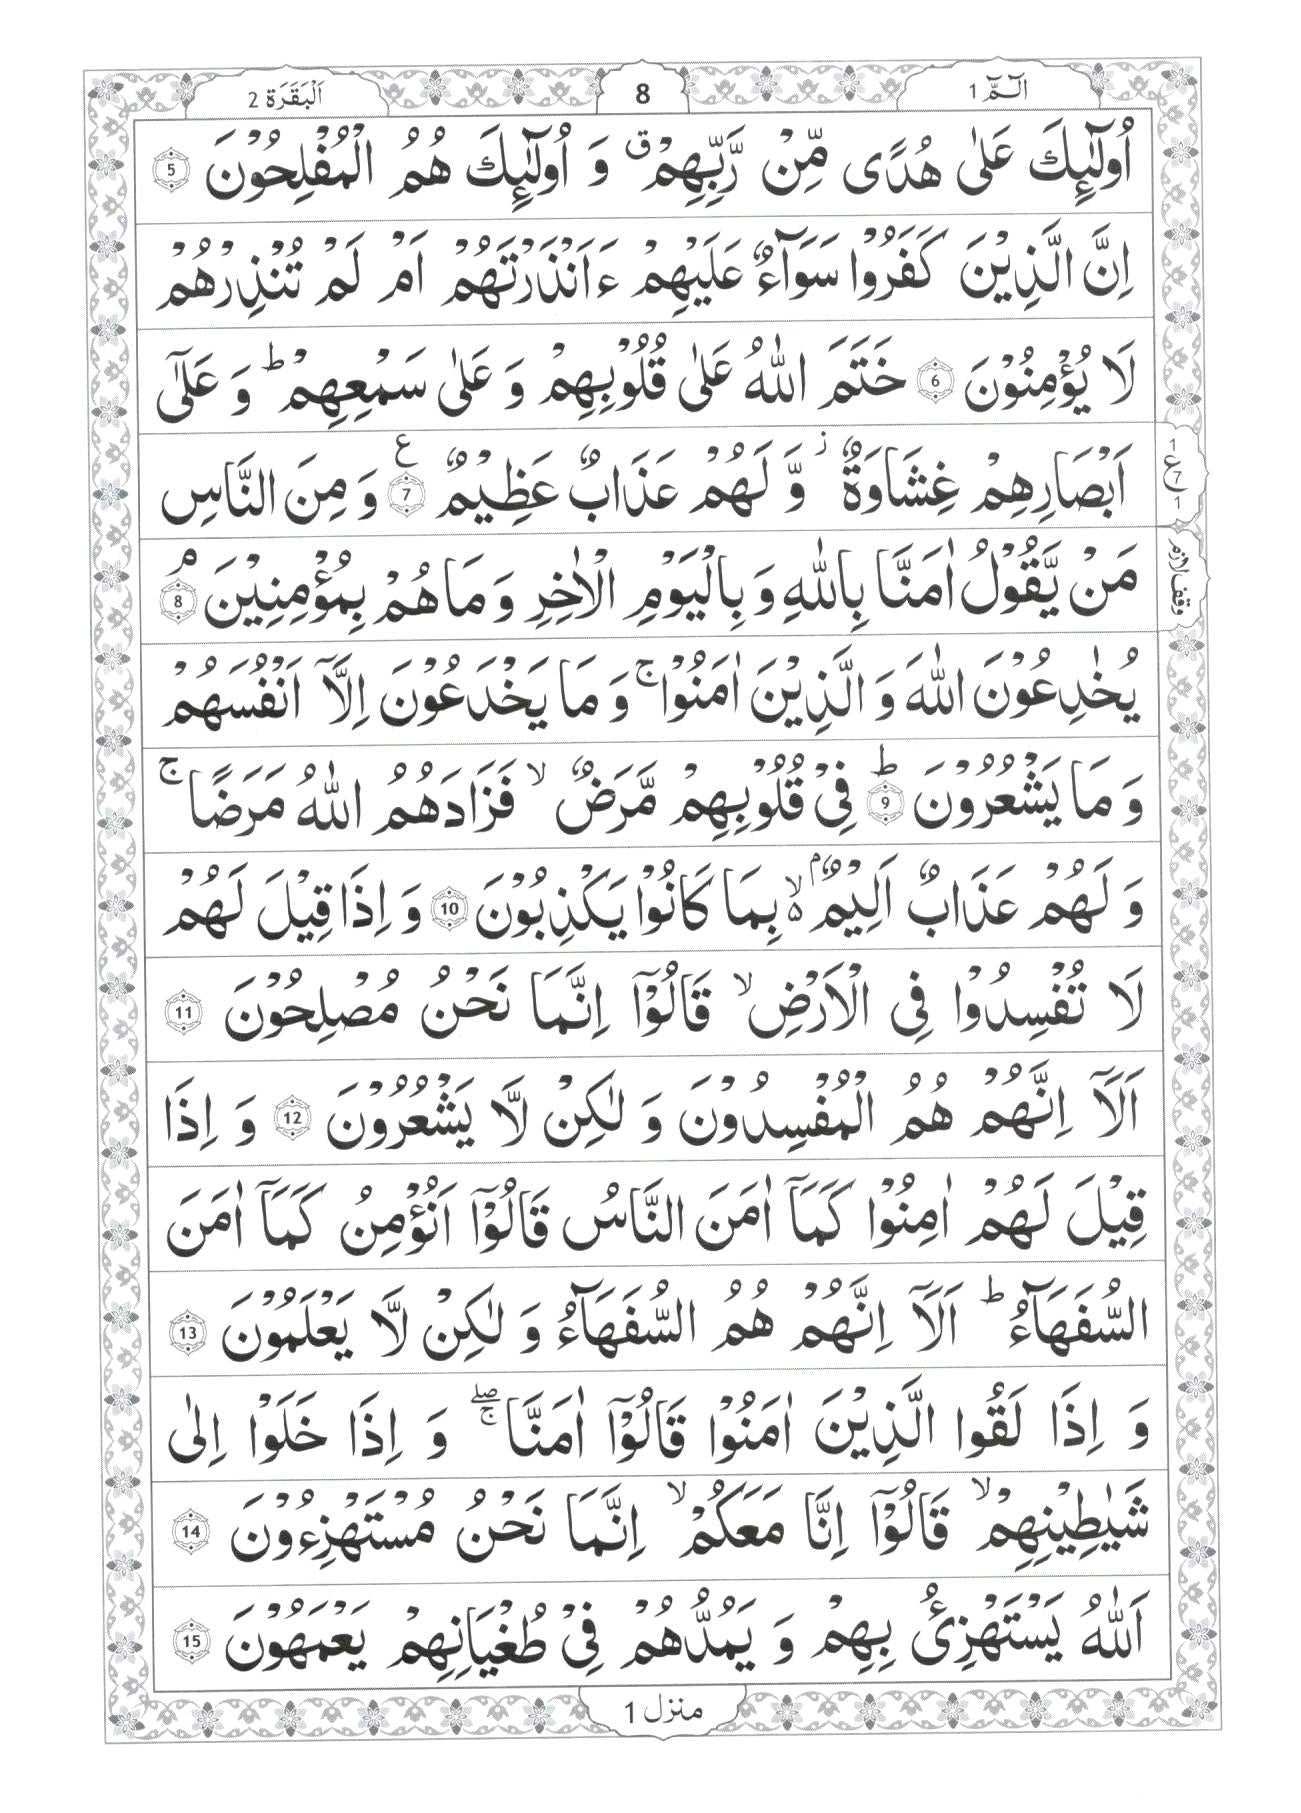 الٓمّٓ 1
8
اَلْبَقَرَة 2
اُولٰٓئِكَ عَلٰى هُدًى مِّنْ رَّبِّهِمْ ۗ وَ اُولٰٓئِكَ هُمُ الْمُفْلِحُوْنَ 5
اِنَّ الَّذِيْنَ كَفَرُوْا سَوَآءٌ عَلَيْهِمْ ءَاَنْذَرْتَهُمْ اَمْ لَمْ تُنْذِرْهُمْ
لَا يُؤْمِنُوْنَ 6 خَتَمَ اللّٰهُ عَلٰى قُلُوْبِهِمْ وَ عَلٰى سَمْعِهِمْ ؕ وَ عَلٰٓى
اَبْصَارِهِمْ غِشَاوَةٌ ز وَّ لَهُمْ عَذَابٌ عَظِيْمٌ 7 ع وَ مِنَ النَّاسِ
1 ع 7 1
مَنْ يَّقُوْلُ اٰمَنَّا بِاللّٰهِ وَ بِالْيَوْمِ الْاٰخِرِ وَ مَا هُمْ بِمُؤْمِنِيْنَ 8 ۘ
وقف لازم
يُخٰدِعُوْنَ اللّٰهَ وَ الَّذِيْنَ اٰمَنُوْا ۚ وَ مَا يَخْدَعُوْنَ اِلَّاۤ اَنْفُسَهُمْ
وَ مَا يَشْعُرُوْنَ 9 ؕ فِيْ قُلُوْبِهِمْ مَّرَضٌ ۙ فَزَادَهُمُ اللّٰهُ مَرَضًا ۚ
وَ لَهُمْ عَذَابٌ اَلِيْمٌۢ ۙ۬ بِمَا كَانُوْا يَكْذِبُوْنَ 10 وَ اِذَا قِيْلَ لَهُمْ
لَا تُفْسِدُوْا فِي الْاَرْضِ ۙ قَالُوْۤا اِنَّمَا نَحْنُ مُصْلِحُوْنَ 11
اَلَاۤ اِنَّهُمْ هُمُ الْمُفْسِدُوْنَ وَ لٰكِنْ لَّا يَشْعُرُوْنَ 12 وَ اِذَا
قِيْلَ لَهُمْ اٰمِنُوْا كَمَاۤ اٰمَنَ النَّاسُ قَالُوْۤا اَنُؤْمِنُ كَمَاۤ اٰمَنَ
السُّفَهَآءُ ؕ اَلَاۤ اِنَّهُمْ هُمُ السُّفَهَآءُ وَ لٰكِنْ لَّا يَعْلَمُوْنَ 13
وَ اِذَا لَقُوا الَّذِيْنَ اٰمَنُوْا قَالُوْۤا اٰمَنَّا ۖۚ وَ اِذَا خَلَوْا اِلٰى
شَيٰطِيْنِهِمْ ۙ قَالُوْۤا اِنَّا مَعَكُمْ ۙ اِنَّمَا نَحْنُ مُسْتَهْزِءُوْنَ 14
اَللّٰهُ يَسْتَهْزِئُ بِهِمْ وَ يَمُدُّهُمْ فِيْ طُغْيَانِهِمْ يَعْمَهُوْنَ 15
منزل 1